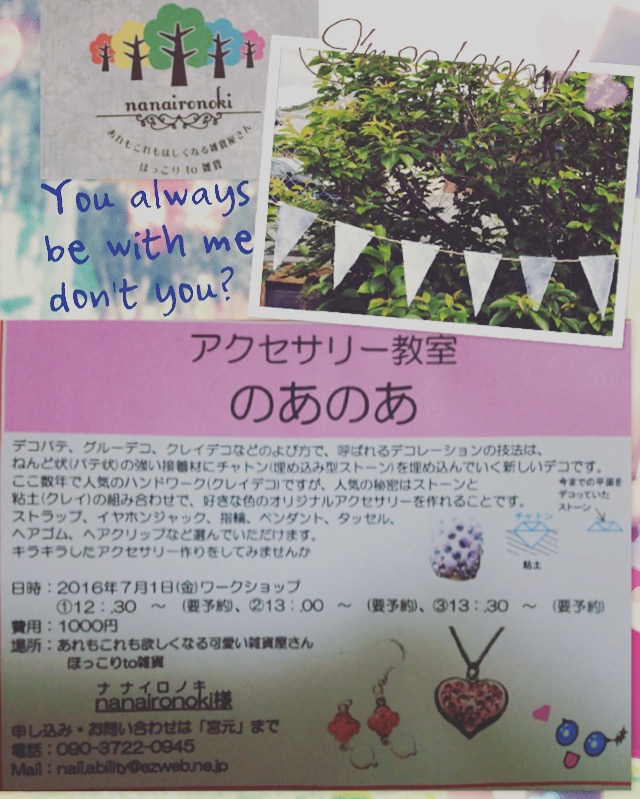 I'm so happy!
nanaironoki
あれもこれもほしくなる雑貨屋さん
ほっこり to 雑貨
You always
be with me
don't you?
アクセサリー教室
のあのあ
デコパテ、グルーデコ、クレイデコなどのよび方で、呼ばれるデコレーションの技法は、
ねんど状(パテ状)の強い接着材にチャトン(埋め込み型ストーン)を埋め込んでいく新しいデコです。
ここ数年で人気のハンドワーク(クレイデコ)ですが、人気の秘密はストーンと
粘土(クレイ)の組み合わせで、好きな色のオリジナルアクセサリーを作れることです。
ストラップ、イヤホンジャック、指輪、ペンダント、タッセル、
ヘアゴム、ヘアクリップなど選んでいただけます。
キラキラしたアクセサリー作りをしてみませんか
今までの平面を
デコっていた
ストーン
チャトン
粘土
日時：2016年7月1日(金)ワークショップ
①12：.30 ～ (要予約)、②13：.00 ～ (要予約)、③13：.30 ～ (要予約)
費用：1000円
場所：あれもこれも欲しくなる可愛い雑貨屋さん
ほっこりto雑貨
ナナイロノキ
nanaironoki様
申し込み・お問い合わせは「宮元」まで
電話：090-3722-0945
Mail：nail.ability@ezweb.ne.jp